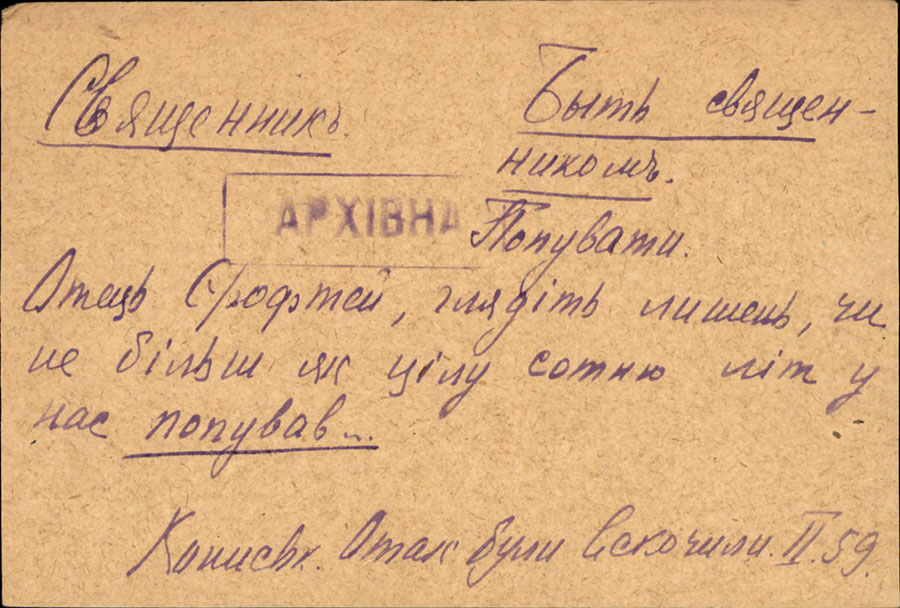 Священникъ.
Быть священ-
никомъ.
АРХІВНА
Попувати.
Отець Єрофтей, глядіть лишень, чи
не більш як цілу сотню літ у
нас попував...
Кониськ. Отак були вскочили. II. 59.